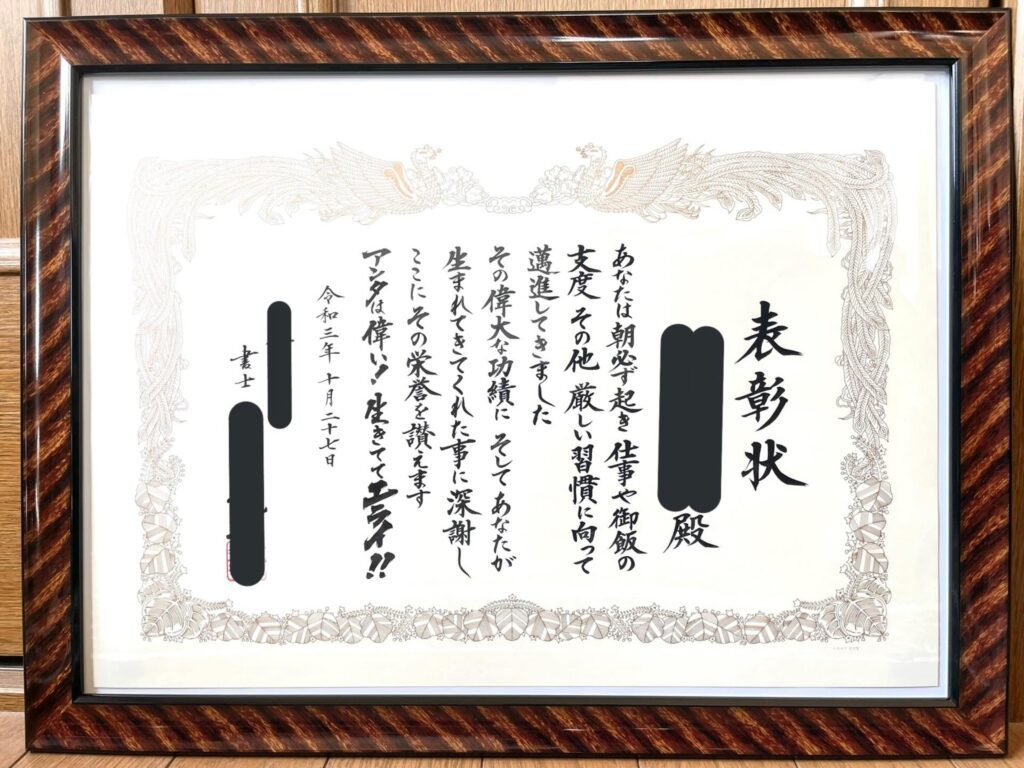 表彰状
殿
あなたは 朝必ず起き 仕事や御飯の
支度 その他 厳しい習慣に向って
邁進してきました
その偉大な功績に そして あなたが
生まれてきてくれた事に 深謝し
ここに その栄誉を讃えます
アンタは偉い! 生きててエライ!!
令和三年 十月二十七日
書士